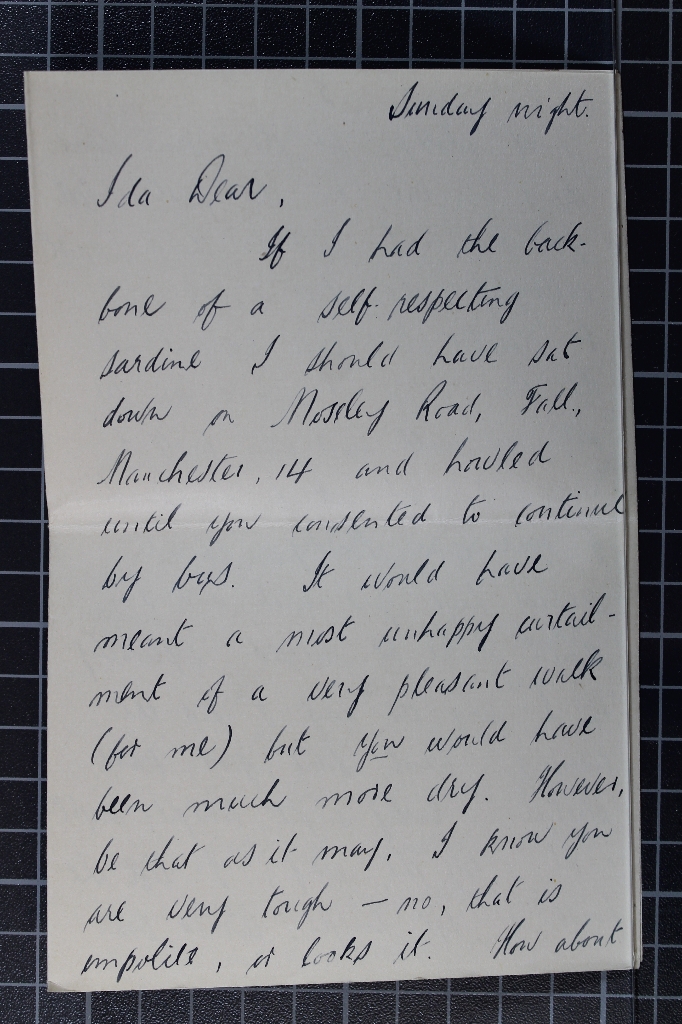 Sunday night.
Ida Dear,
If I had the back-
bone of a self-respecting
sardine I should have sat
down on Moseley Road, Fall.,
Manchester, 14 and howled
until you consented to continue
by bus. It would have
meant a most unhappy curtail-
ment of a very pleasant walk
(for me) but you would have
been much more dry. However,
be that as it may, I know you
are very tough — no, that is
impolite, or looks it. How about